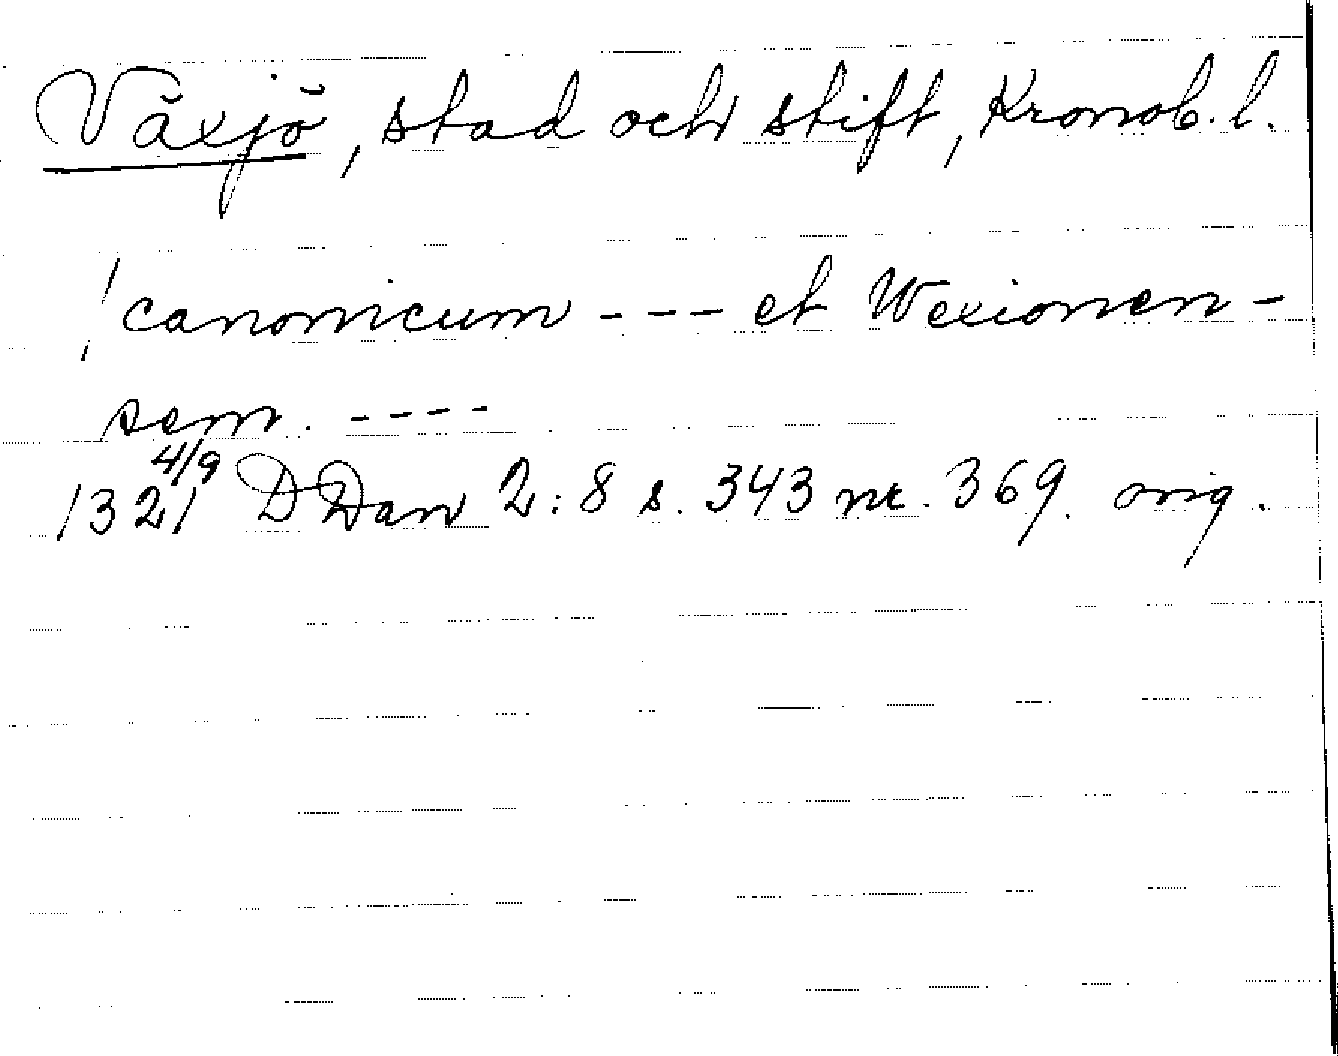 Växjö, stad och stift, Kronob. l.
/canonicum --- et Wexionen-
sem. ----
1321 4/9 DDan 2:8 s. 343 nr. 369. orig.